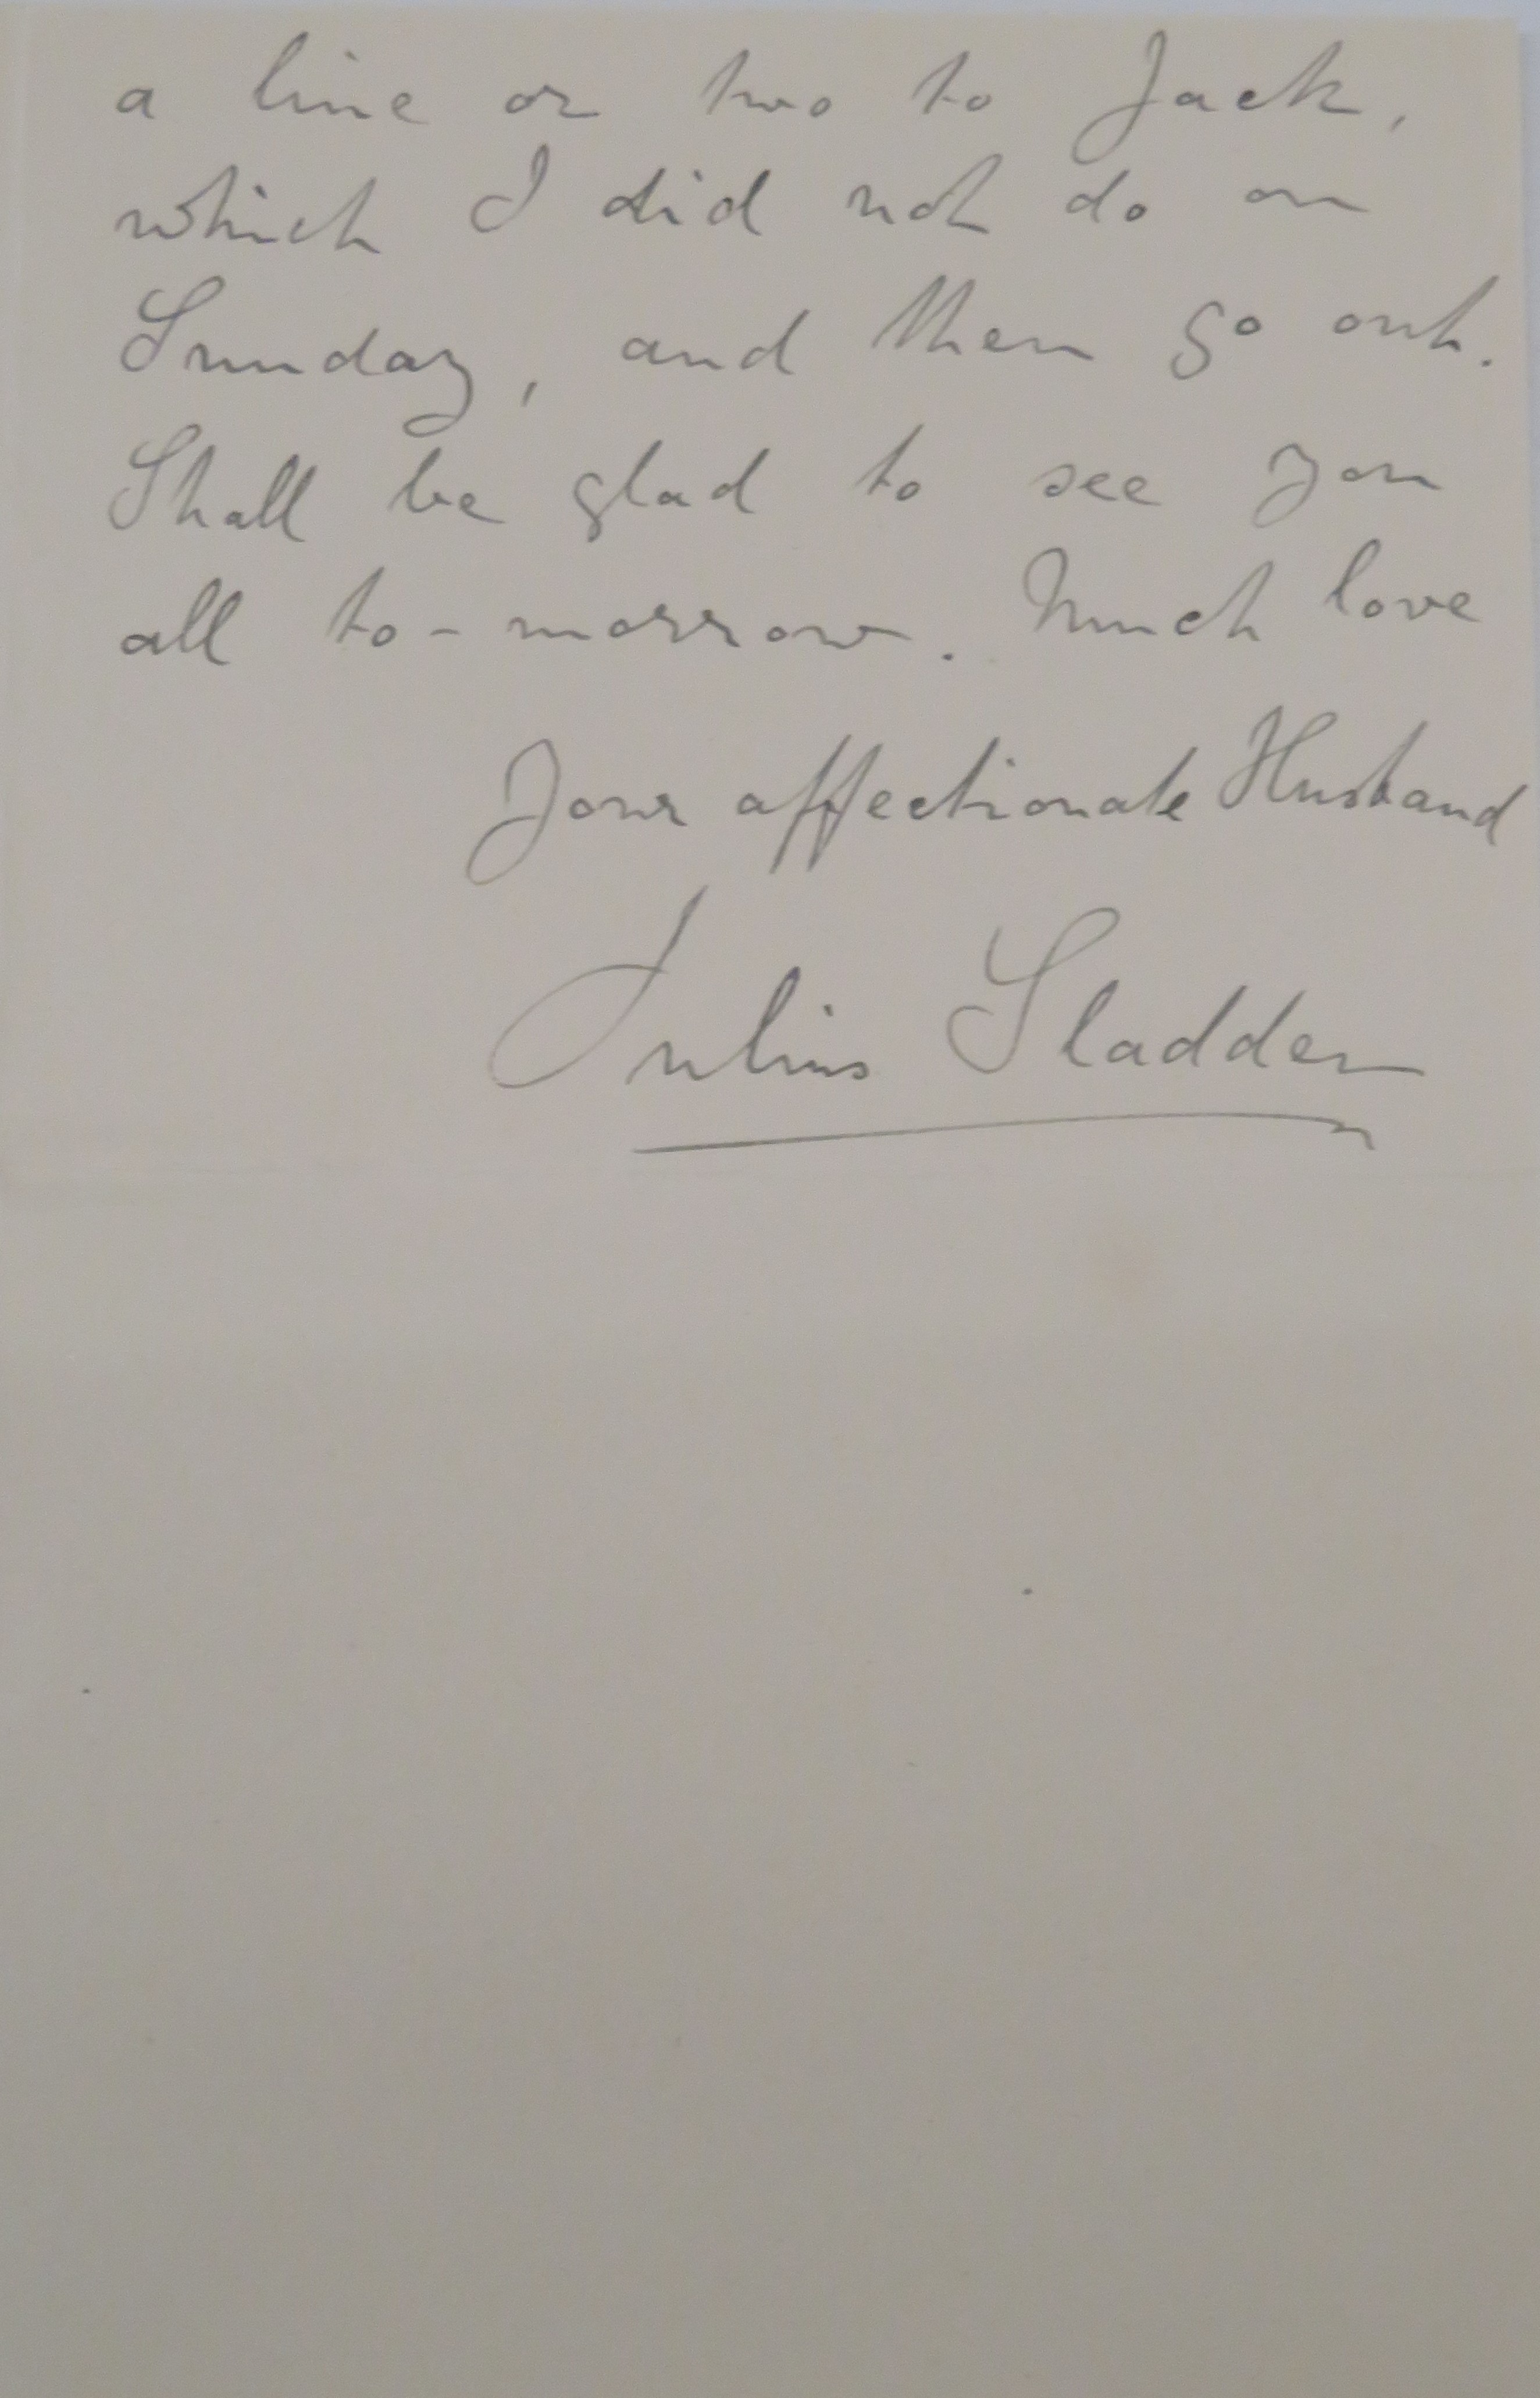 a line or two to Jack,
which I did not do on
Sunday, and then go out.
Shall be glad to see you
all to-morrow. Much love
Your affectionate Husband
Julius Sladden